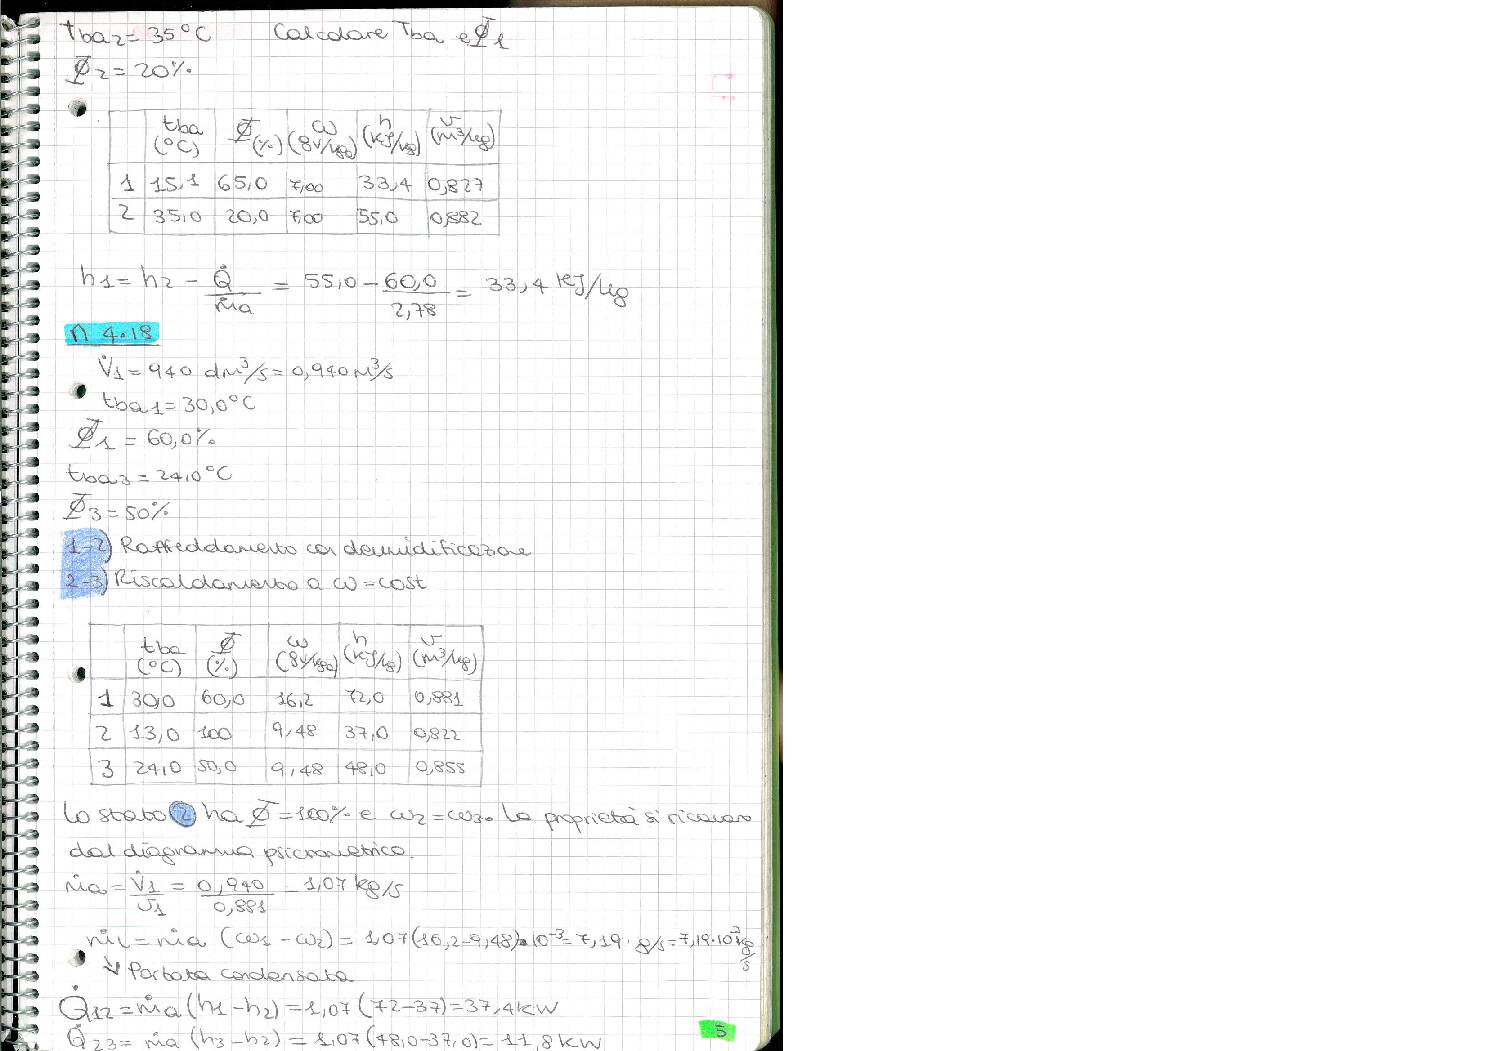 tba2 = 35°C Calcolare Tba e Φ1
Φ2 = 20%
tba (°C) Φ (%) ω (gv/kga) h (kJ/kg) v (m³/kg)
1 15,1 65,0 7,00 33,4 0,827
2 35,0 20,0 7,00 55,0 0,882
h1 = h2 - Q̇/ṁa = 55,0 - 60,0/2,78 = 33,4 kJ/kg
n 4.18
V̇1 = 940 dm³/s = 0,940 m³/s
tba1 = 30,0°C
Φ1 = 60,0%
tba3 = 24,0°C
Φ3 = 50%
1-2) Raffreddamento con deumidificazione
2-3) Riscaldamento a ω = cost
tba (°C) Φ (%) ω (gv/kga) h (kJ/kg) v (m³/kg)
1 30,0 60,0 16,2 72,0 0,881
2 13,0 100 9,48 37,0 0,822
3 24,0 50,0 9,48 48,0 0,855
Lo stato 2 ha Φ = 100% e ω2 = ω3. Le proprietà si ricavano
dal diagramma psicrometrico.
ṁa = V̇1/v1 = 0,940/0,881 = 1,07 kg/s
ṁL = ṁa (ω1 - ω2) = 1,07 (16,2 - 9,48) • 10⁻³ = 7,19 · g/s = 7,19·10⁻³ kg/s
↳ Portata condensata
Q̇12 = ṁa (h1 - h2) = 1,07 (72 - 37) = 37,4 kW
Q̇23 = ṁa (h3 - h2) = 1,07 (48,0 - 37,0) = 11,8 kW
5